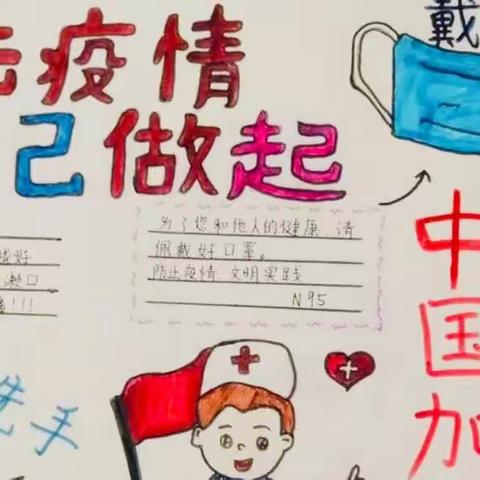 疫情
己做起
戴
为了您和他人的健康,请
佩戴好口罩。
防止疫情.文明实践
N95
戴好
漱口
!!!
洗手
中国加